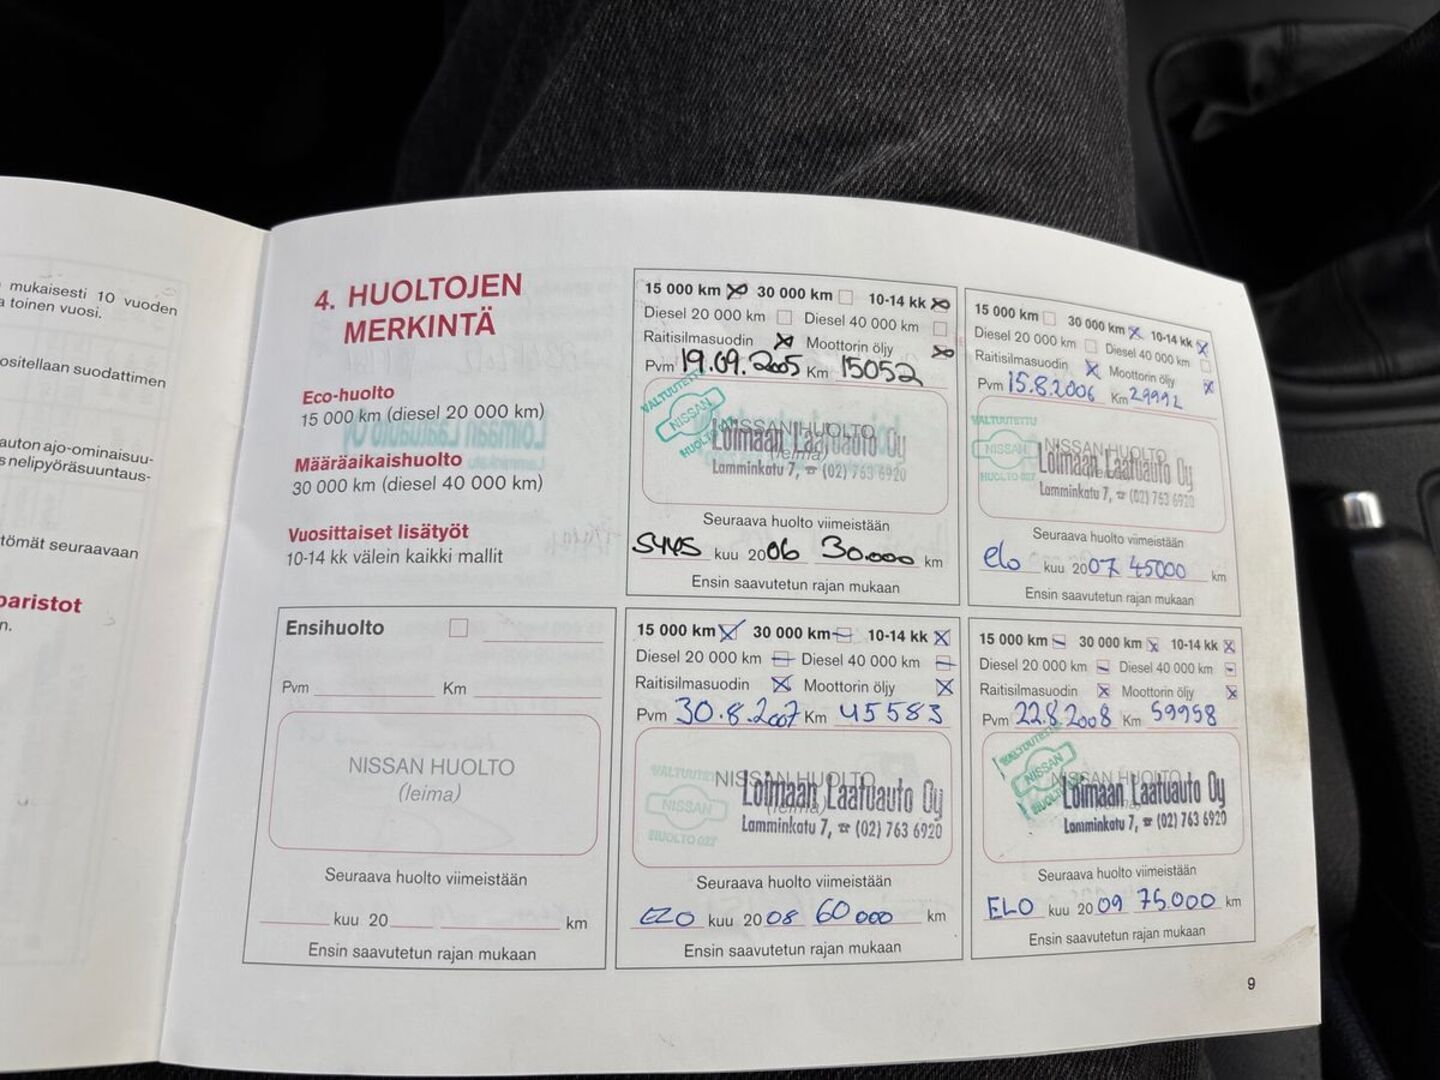 mukaisesti 10 vuoden
a toinen vuosi.
ositellaan suodattimen
auton ajo-ominaisuu-
s nelipyöräsuuntaus-
tömät seuraavaan
paristot
n.
4. HUOLTOJEN
MERKINTÄ
Eco-huolto
15 000 km (diesel 20 000 km)
Määräaikaishuolto
30 000 km (diesel 40 000 km)
Vuosittaiset lisätyöt
10-14 kk välein kaikki mallit
15 000 km 30 000 km 10-14 kk
Diesel 20 000 km Diesel 40 000 km
Raitisilmasuodin Moottorin öljy
Pvm 19.09.2005 Km 15052
VALTUUTETTU
NISSAN
HUOLTO
NISSAN HUOLTO
(leima)
Loimaan Laatuauto Oy
Lamminkatu 7, ☎ (02) 763 6920
Seuraava huolto viimeistään
SYYS kuu 2006 30.000 km
Ensin saavutetun rajan mukaan
15 000 km 30 000 km 10-14 kk
Diesel 20 000 km Diesel 40 000 km
Raitisilmasuodin Moottorin öljy
Pvm 15.8.2006 Km 29992
VALTUUTETTU
NISSAN
HUOLTO 027
NISSAN HUOLTO
Loimaan Laatuauto Oy
Lamminkatu 7, ☎ (02) 763 6920
Seuraava huolto viimeistään
elo kuu 2007 45000 km
Ensin saavutetun rajan mukaan
Ensihuolto
Pvm Km
NISSAN HUOLTO
(leima)
Seuraava huolto viimeistään
kuu 20 km
Ensin saavutetun rajan mukaan
15 000 km 30 000 km 10-14 kk
Diesel 20 000 km Diesel 40 000 km
Raitisilmasuodin Moottorin öljy
Pvm 30.8.2007 Km 45583
VALTUUTETTU
NISSAN
HUOLTO 027
NISSAN HUOLTO
(leima)
Loimaan Laatuauto Oy
Lamminkatu 7, ☎ (02) 763 6920
Seuraava huolto viimeistään
ELO kuu 2008 60000 km
Ensin saavutetun rajan mukaan
15 000 km 30 000 km 10-14 kk
Diesel 20 000 km Diesel 40 000 km
Raitisilmasuodin Moottorin öljy
Pvm 22.8.2008 Km 59958
VALTUUTETTU
NISSAN
HUOLTO
NISSAN HUOLTO
(leima)
Loimaan Laatuauto Oy
Lamminkatu 7, ☎ (02) 763 6920
Seuraava huolto viimeistään
ELO kuu 2009 75.000 km
Ensin saavutetun rajan mukaan
9